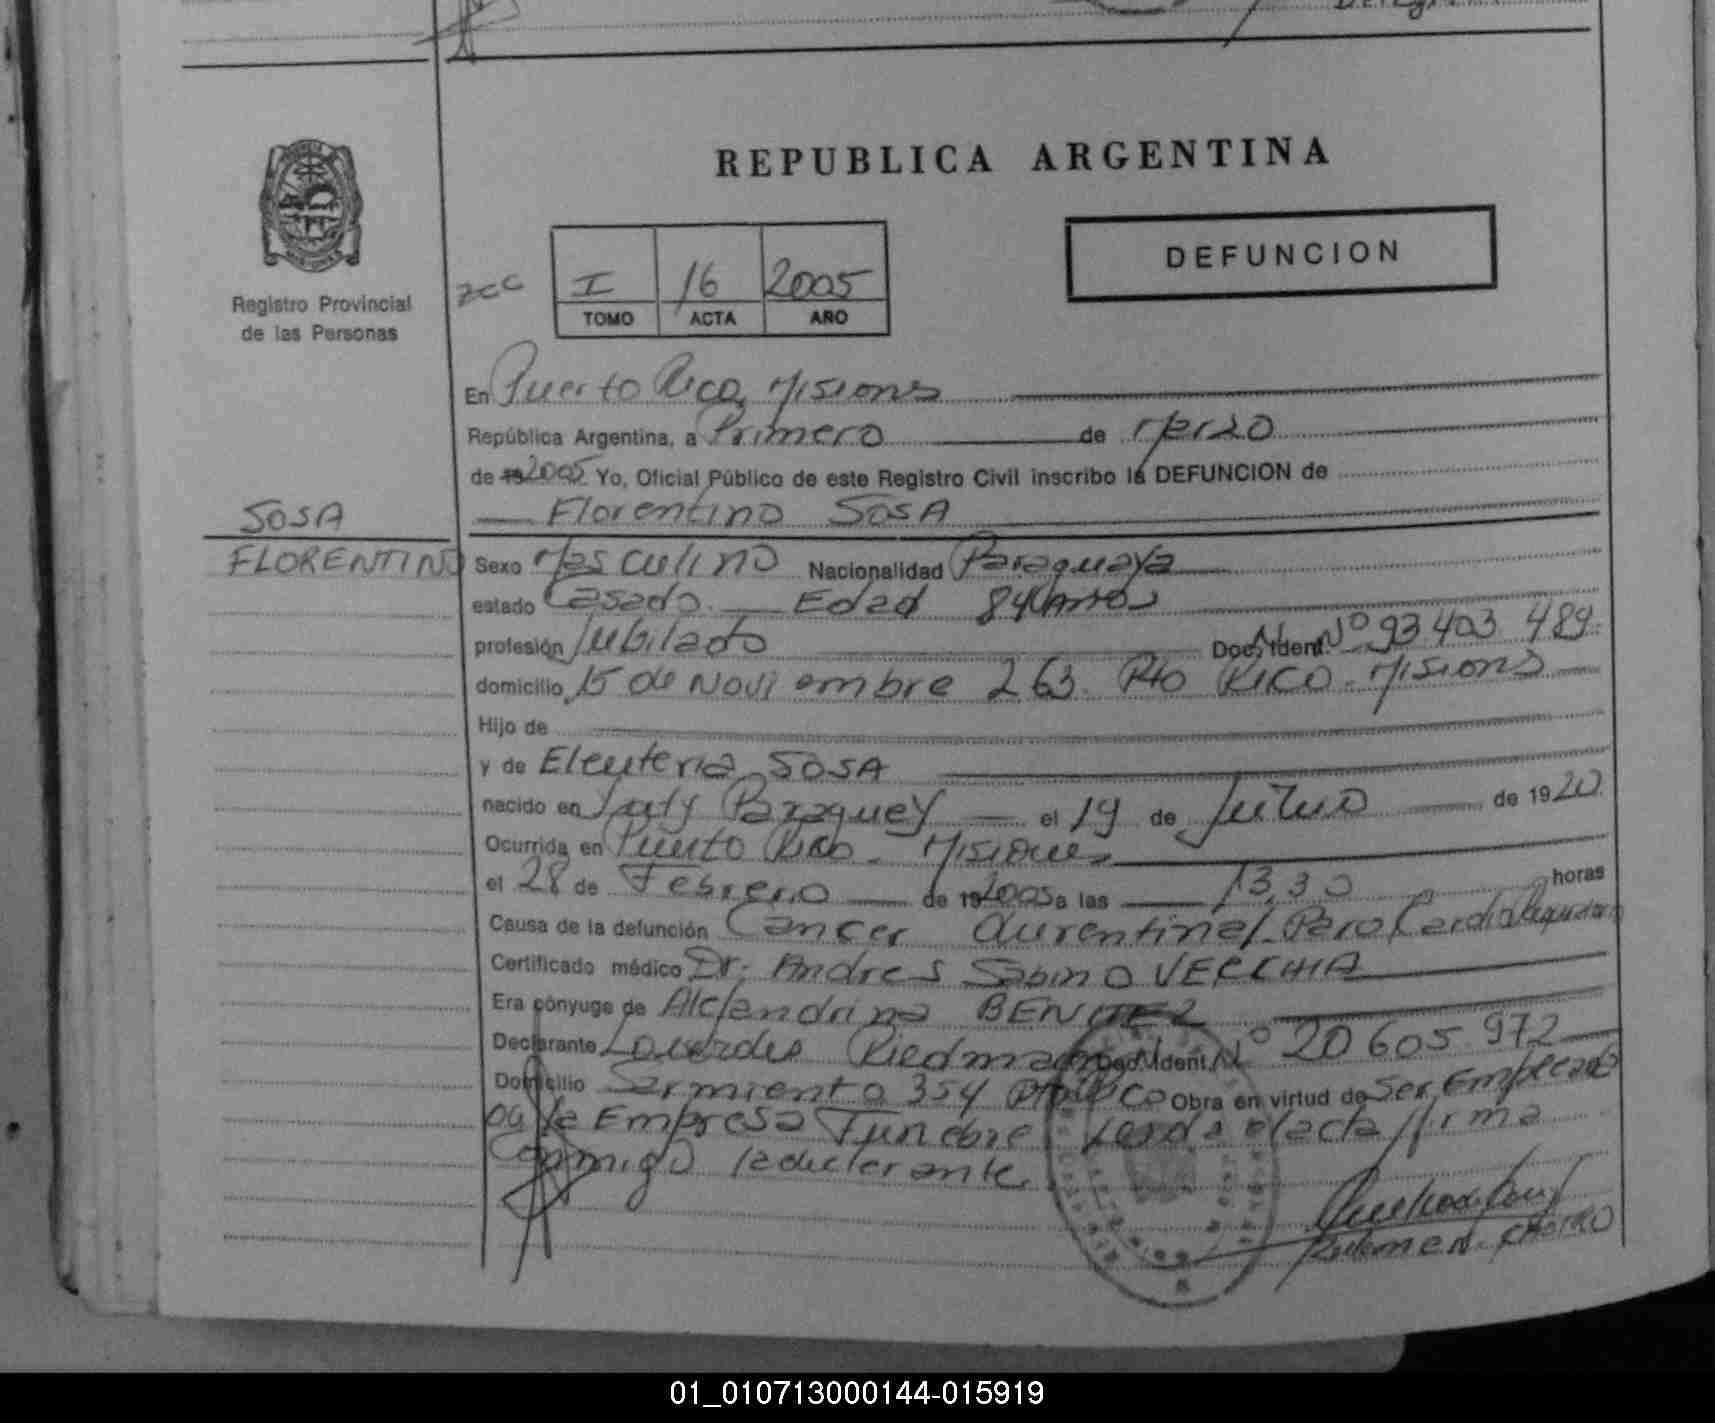 REPUBLICA ARGENTINA
DEFUNCION
Registro Provincial
de las Personas
I 16 2005
TOMO ACTA AÑO
En Puerto Rico, Misiones
República Argentina, a Primero de Marzo
de 19 2005 Yo, Oficial Público de este Registro Civil inscribo la DEFUNCION de
Florentino SOSA
SOSA
FLORENTINO
Sexo Masculino Nacionalidad Paraguaya
estado Casado. Edad 84 Años
profesión Jubilado Doc. Ident. Nº 93 403 489.
domicilio 15 de Noviembre 263. Pto Rico. Misiones
Hijo de
y de Eleuteria SOSA
nacido en Paraguay el 19 de Julio de 1920.
Ocurrida en Puerto Rico. Misiones
el 28 de Febrero de 19 2005 a las 13,30 horas
Causa de la defunción Cancer Paro Cardio
Certificado médico Dr. Andres Sabino VECCHIA
Era cónyuge de Alejandrina BENITEZ
Declarante Lourdes Riedmann Doc. Ident. Nº 20 605 972
Domicilio Sarmiento 354 Pto Rico Obra en virtud de Ser Empleado
de la Empresa Funebre Leida el acta firma
Conmigo la declarante.
01_010713000144-015919